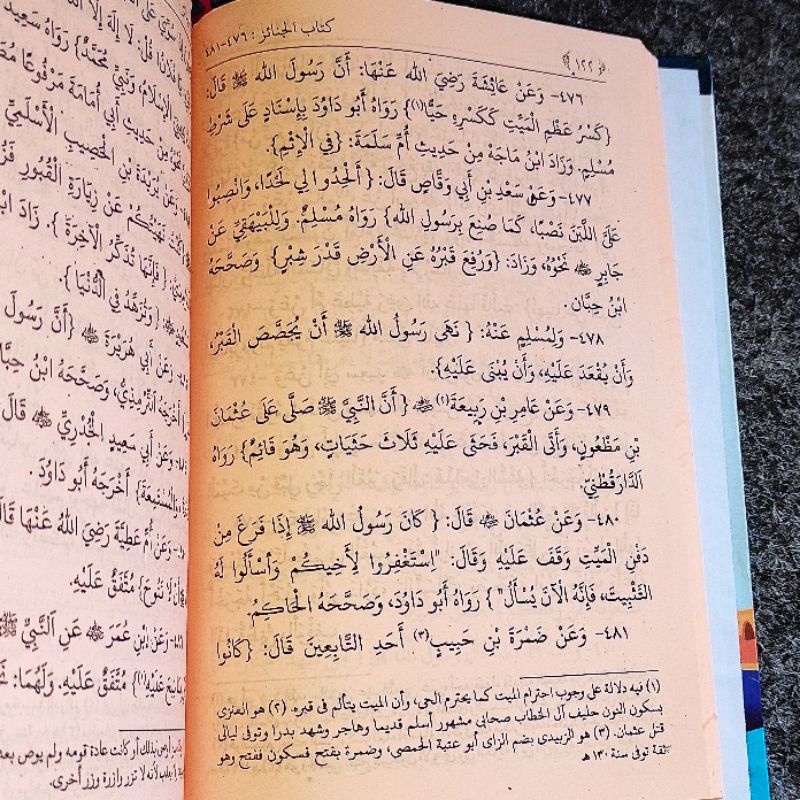 ﴿١٢٢﴾ كتاب الجنائز : ٤٧٦-٤٨١
٤٧٦- وَعَنْ عَائِشَةَ رَضِيَ الله عَنْهَا: أَنَّ رَسُولَ الله ﷺ قَالَ:
{كَسْرُ عَظْمِ الْمَيِّتِ كَكَسْرِهِ حَيًّا(١)} رَوَاهُ أَبُو دَاوُدَ بِإِسْنَادٍ عَلَى شَرْطِ
مُسْلِمٍ. وَزَادَ ابْنُ مَاجَهْ مِنْ حَدِيثِ أُمِّ سَلَمَةَ: {فِي الْإِثْمِ}.
٤٧٧- وَعَنْ سَعْدِ بْنِ أَبِي وَقَّاصٍ قَالَ: { أَلْحِدُوا لِي لَحْدًا، وَانْصِبُوا
عَلَيَّ اللَّبِنَ نَصْبًا، كَمَا صُنِعَ بِرَسُولِ الله} رَوَاهُ مُسْلِمٌ. وَلِلْبَيْهَقِيِّ عَنْ
جَابِرٍ ﷺ نَحْوُهُ، وَزَادَ: {وَرُفِعَ قَبْرُهُ عَنِ الْأَرْضِ قَدْرَ شِبْرٍ} وَصَحَّحَهُ
ابْنُ حِبَّان.
٤٧٨- وَلِمُسْلِمٍ عَنْهُ: { نَهَى رَسُولُ الله ﷺ أَنْ يُجَصَّصَ الْقَبْرُ،
وَأَنْ يُقْعَدَ عَلَيْهِ، وَأَنْ يُبْنَى عَلَيْهِ}.
٤٧٩- وَعَنْ عَامِرِ بْنِ رَبِيعَةَ(٢) ﷺ { أَنَّ النَّبِيَّ ﷺ صَلَّى عَلَى عُثْمَانَ
بْنِ مَظْعُونٍ، وَأَتَى الْقَبْرَ، فَحَثَى عَلَيْهِ ثَلَاثَ حَثَيَاتٍ، وَهُوَ قَائِمٌ} رَوَاهُ
الدَّارَقُطْنِيُّ.
٤٨٠- وَعَنْ عُثْمَانَ ﷺ قَالَ: { كَانَ رَسُولُ الله ﷺ إِذَا فَرَغَ مِنْ
دَفْنِ الْمَيِّتِ وَقَفَ عَلَيْهِ وَقَالَ: "اِسْتَغْفِرُوا لِأَخِيكُمْ وَاسْأَلُوا لَهُ
التَّثْبِيتَ، فَإِنَّهُ الْآنَ يُسْأَلُ" } رَوَاهُ أَبُو دَاوُدَ، وَصَحَّحَهُ الْحَاكِمُ.
٤٨١- وَعَنْ ضَمْرَةَ بْنِ حَبِيبٍ(٣) أَحَدِ التَّابِعِينَ قَالَ: {كَانُوا
(١) فيه دلالة على وجوب احترام الميت كما يحترم الحى، وأن الميت يتألم فى قبره. (٢) هو العنزى
بسكون النون حليف آل الخطاب صحابي مشهور أسلم قديما وهاجر وشهد بدرا وتوفى ليالى
قتل عثمان. (٣) هو الزبيدى بضم الزاى أبو عتبة الحمصى، وضمرة بفتح فسكون ففتح وهو
ثقة توفى سنة ١٣٠ هـ
فُلَانُ قُلْ: لَا إِلَهَ إِلَّا
الْإِسْلَامُ، وَنَبِيِّ مُحَمَّدٌ} رَوَاهُ سَعِيدُ
مِنْ حَدِيثِ أَبِي أُمَامَةَ مَرْفُوعًا
وَعَنْ بُرَيْدَةَ بْنِ الْحُصِيبِ الْأَسْلَمِيِّ
نَهَيْتُكُمْ عَنْ زِيَارَةِ الْقُبُورِ
فَإِنَّهَا تُذَكِّرُ الْآخِرَةَ }. زَادَ
{ وَتُزَهِّدُ فِي الدُّنْيَا }.
وَعَنْ أَبِي هُرَيْرَةَ ﷺ {أَنَّ رَسُولَ
أَخْرَجَهُ التِّرْمِذِيُّ، وَصَحَّحَهُ ابْنُ
وَعَنْ أَبِي سَعِيدٍ الْخُدْرِيِّ ﷺ قَالَ
وَالْمُسْتَمِعَةَ} أَخْرَجَهُ أَبُو دَاوُدَ .
وَعَنْ أُمِّ عَطِيَّةَ رَضِيَ اللهُ عَنْهَا
لَا نَنُوحَ} مُتَّفَقٌ عَلَيْهِ.
وَعَنْ ابْنِ عُمَرَ ﷺ عَنِ النَّبِيِّ
نِيحَ عَلَيْهِ(١)} مُتَّفَقٌ عَلَيْهِ. وَلَهُمَا:
بذلك أو كانت عادة قومه ولم يوص
لأنه لا تزر وازرة وزر أخرى.